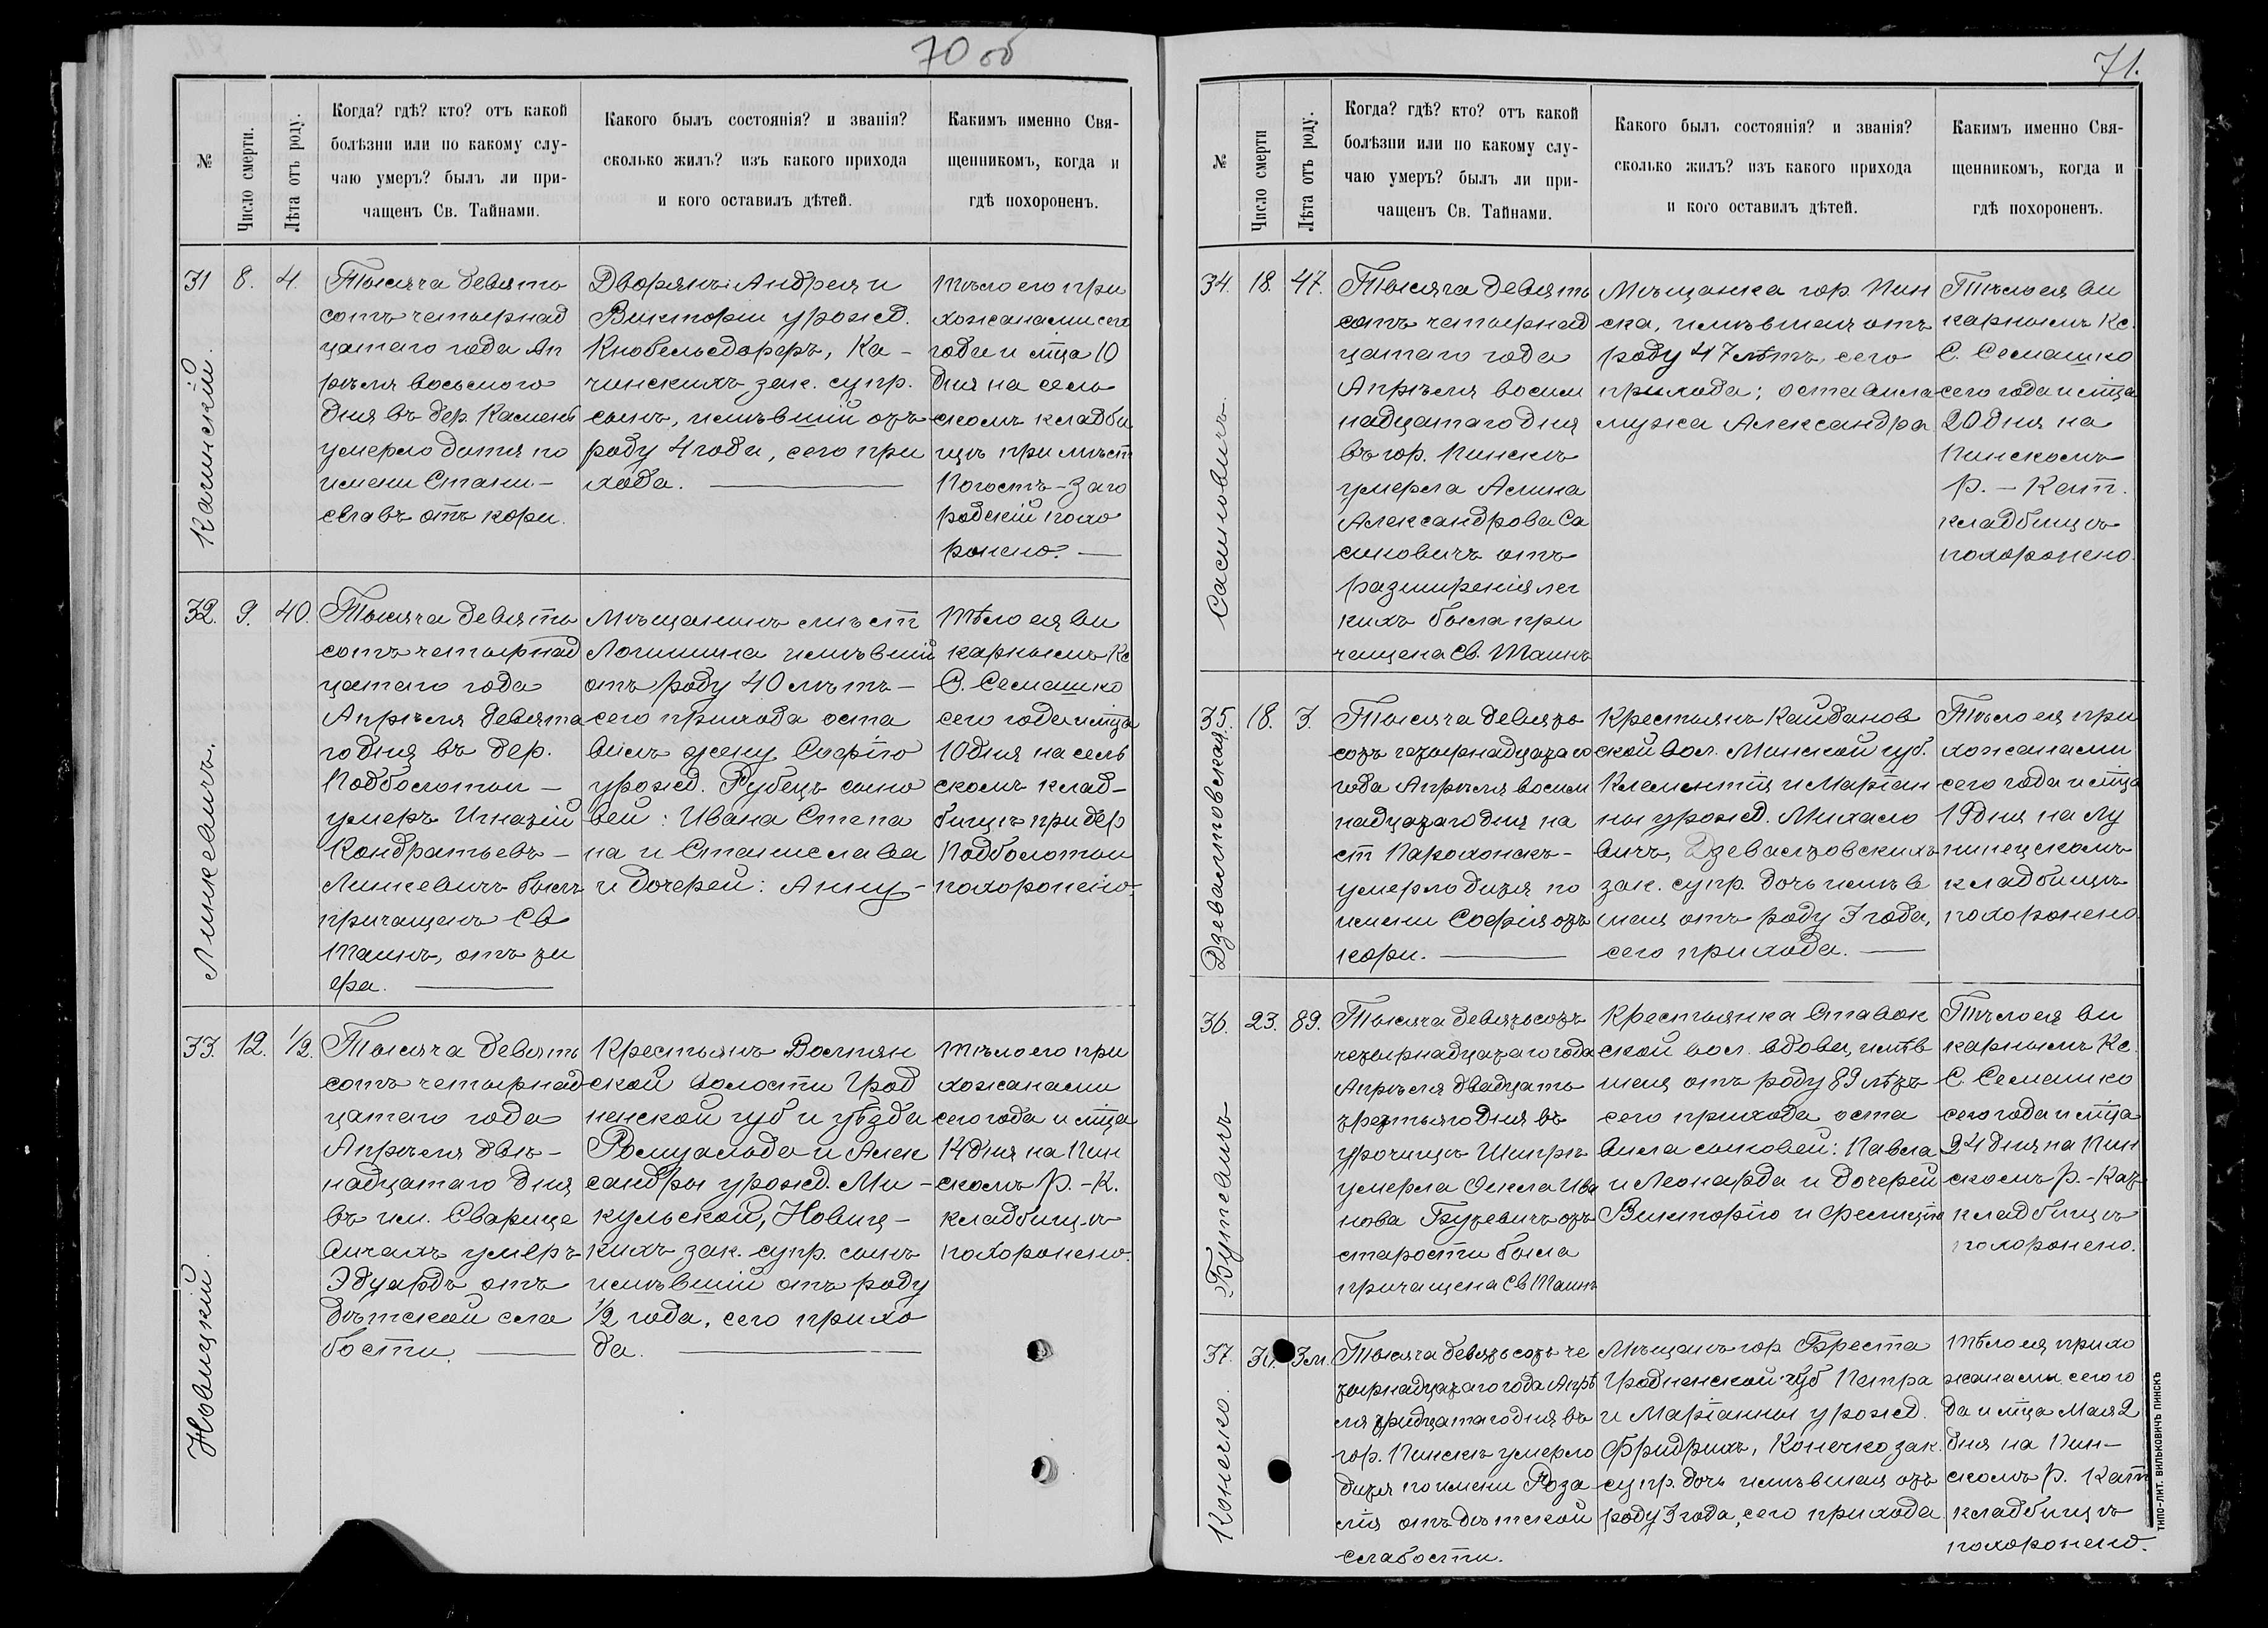 70 об
№
Число смерти.
Лѣта отъ роду.
Когда? гдѣ? кто? отъ какой
болѣзни или по какому слу-
чаю умеръ? былъ ли при-
чащенъ Св. Тайнами.
Какого былъ состоянія? и званія?
сколько жилъ? изъ какого прихода
и кого оставилъ дѣтей.
Какимъ именно Свя-
щенникомъ, когда и
гдѣ похороненъ.
31
Качинскій.
8.
4.
Тысяча девять
сотъ четырнад
цатаго года Ап
рѣля восьмого
дня въ дер. Камень
умерло дитя по
имени Стани-
славъ отъ кори.
Дворянъ Андрея и
Викторіи урожд.
Кнобельсдорфъ, Ка-
чинскихъ зак. супр.
сынъ, имѣвшій отъ
роду 4 года, сего при
хода.
Тѣло его при
хожанами сего
года и мѣца 10
дня на сель
скомъ кладби
щѣ при мѣст
Погостъ-Заго
родскій похо
ронено.
32.
Линкевичъ.
9.
40.
Тысяча девять
сотъ четырнад
цатаго года
Апрѣля девята
го дня въ дер.
Подболотьи -
умеръ Игнатій
Кондратьевъ -
Линкевичъ былъ
причащенъ Св
Таинъ, отъ ти
фа.
Мѣщанинъ мѣст
Логишина имѣвшій
отъ роду 40 лѣтъ -
сего прихода оста
вилъ жену Софію
урожд. Рубецъ сыно
вей: Ивана Степа
на и Станислава
и дочерей: Анну -
Тѣло ея ви
карнымъ Кс
С. Семашко
сего года и мѣца
10 дня на сель
скомъ клад-
бищѣ при дер
Подболотьи
похоронено.
33.
Новицкій.
12.
1/2.
Тысяча девять
сотъ четырнад
цатаго года
Апрѣля двѣ-
надцатаго дня
въ им. Сварице
вичахъ умеръ
Эдуардъ отъ
дѣтской сла
бости.
Крестьянъ Волпян
ской волости Грод
ненской губ и уѣзда
Ромуальда и Алек
сандры урожд. Ми-
кульской, Новиц-
кихъ зак. супр. сынъ
имѣвшій отъ роду
1/2 года, сего прихо
да.
Тѣло его при
хожанами
сего года и мѣца
14 дня на Пин
скомъ Р.-К.
кладбищѣ
похоронено.
71.
№
Число смерти
Лѣта отъ роду.
Когда? гдѣ? кто? отъ какой
болѣзни или по какому слу-
чаю умеръ? былъ ли при-
чащенъ Св. Тайнами.
Какого былъ состоянія? и званія?
сколько жилъ? изъ какого прихода
и кого оставилъ дѣтей.
Какимъ именно Свя-
щенникомъ, когда и
гдѣ похороненъ.
34.
Сасиновичъ.
18.
47.
Тысяча девять
сотъ четырнад
цатаго года
Апрѣля восем
надцатаго дня
въ гор. Пинскѣ
умерла Алина
Александрова Са
синовичъ отъ
разширенія лег
кихъ была при
чащена Св. Таинъ
Мѣщанка гор. Пин
ска, имѣвшая отъ
роду 47 лѣтъ, сего
прихода; оставила
мужа Александра
Тѣло ея ви
карнымъ Кс.
С. Семашко
сего года и мѣца
20 дня на
Пинскомъ
Р. - Кат.
кладбищѣ
похоронено.
35.
Дзевялтовская.
18.
3.
Тысяча девять
сотъ четырнадцатаго
года Апрѣля восем
надцатаго дня на
ст Парохонскъ -
умерло дитя по
имени Софія отъ
кори.
Крестьянъ Кайданов
ской вол. Минской губ.
Клементія и Маріан
ны урожд. Михало
вичъ, Дзевялтовскихъ
зак. супр. дочь имѣв
шая отъ роду 3 года,
сего прихода.
Тѣло ея при
хожанами
сего года и мѣца
19 дня на Лу
нинецкомъ
кладбищѣ
похоронено.
36.
Бутевичъ
23.
89.
Тысяча девятьсотъ
четырнадцатаго года
Апрѣля двадцать
третьяго дня въ
урочищѣ Шпиръ
умерла Фекла Ива
нова Бутевичъ отъ
старости была
причащена Св Таинъ
Крестьянка Ставок
ской вол. вдова, имѣв
шая отъ роду 89 лѣтъ
сего прихода оста
вила сыновей: Павла
и Леонарда и дочерей
Викторію и Фелицію
Тѣло ея ви
карнымъ Кс.
С. Семашко
сего года и мѣца
24 дня на Пин
скомъ Р.-Кат
кладбищѣ
похоронено.
37.
Конечко.
30.
3 м.
Тысяча девятьсотъ че
тырнадцатаго года Апрѣ
ля тридцатаго дня въ
гор. Пинскѣ умерло
дитя по имени Роза
лія отъ дѣтской
слабости.
Мѣщанъ гор Бреста
Гродненской губ Петра
и Маріанны урожд.
Фридрихъ, Конечко зак.
супр. дочь имѣвшая отъ
роду 3 года, сего прихода
Тѣло ея прихо
жанами сего го
да и мѣца Мая 2
дня на Пин-
скомъ Р. Кат
кладбищѣ
похоронено.
ТИПО-ЛИТ. ВИЛЬКОВИЧЪ ПИНСКЪ